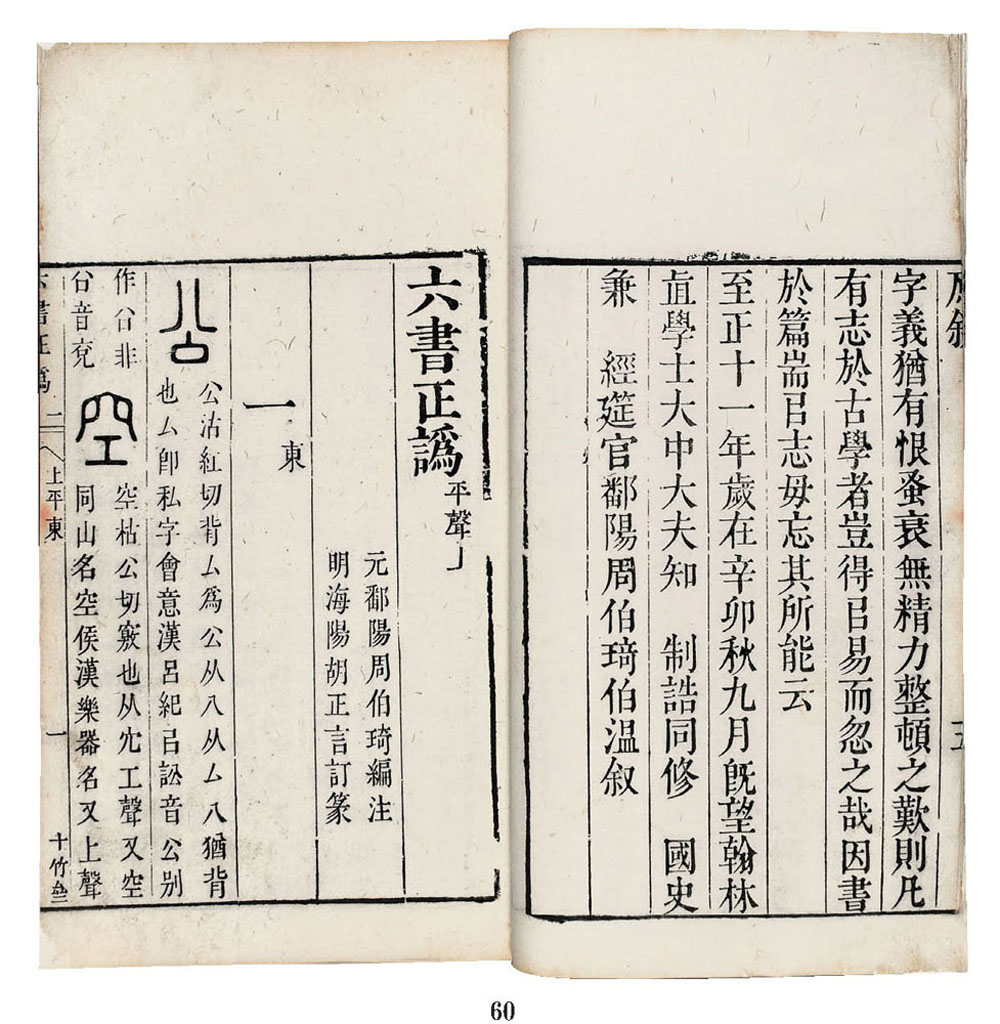 字義猶有恨蚤衰無精力整頓之歎則凡
有志於古學者豈得㠯易而忽之哉因書
於篇耑㠯志毋忘其所能云
至正十一年歲在辛卯秋九月旣望翰林
直學士大中大夫知 制誥同修 國史
兼 經筵官鄱陽周伯琦伯温叙
六書正譌 平聲上
元鄱陽周伯琦編注
明海陽胡正言訂篆
一 東
公 公沽紅切背厶爲公从八从厶八猶背
也厶卽私字會意漢呂紀㠯訟音公别
作㕣非
㕣音兗
空 空枯公切竅也从穴工聲又空
同山名空侯漢樂器名又上聲
上平東
一
十竹
60